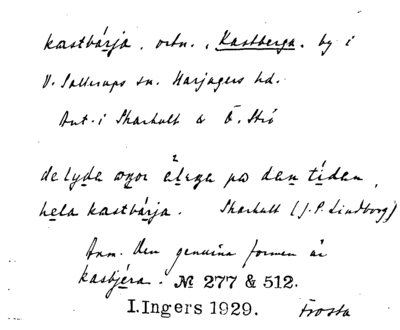 kastbárja, ortn., Kastberga, by i
V. Sallerups sn. Harjagers hd.
Ant. i Skarhult & Ö. Strö
de lyda ... på dan tídan,
hela kastbárja. Skarhult (J. P. Lindborg)
Anm. Den genuina formen är
kasbjéra. № 277 & 512.
I. Ingers 1929. Frosta